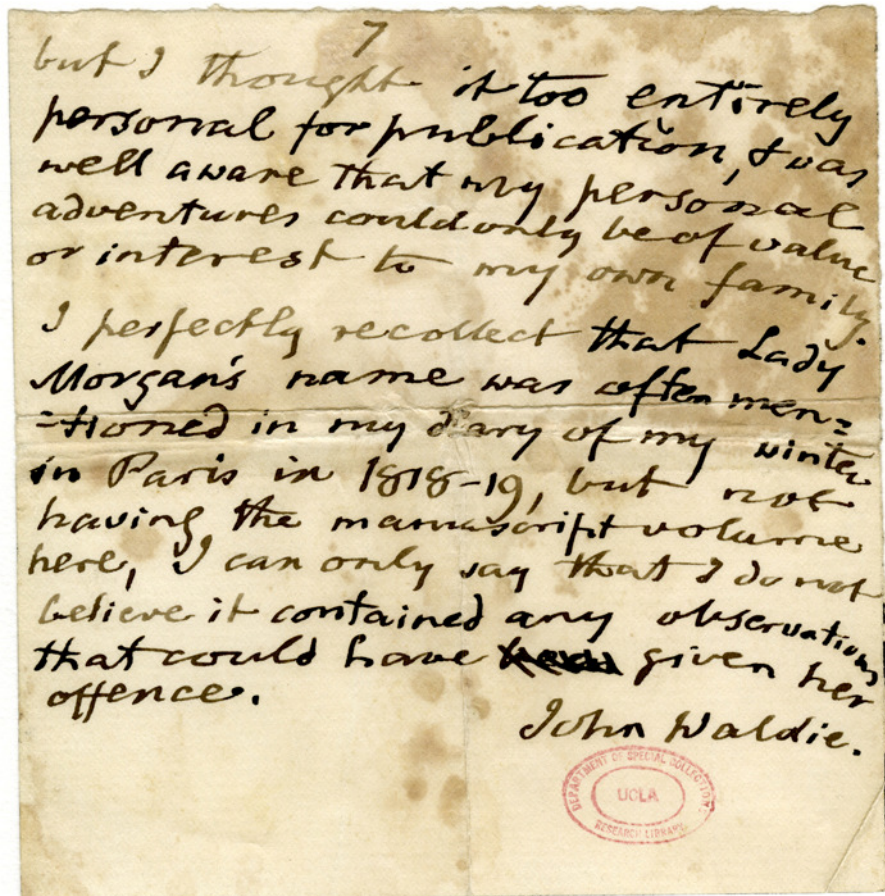 7
but I thought it too entirely
personal for publication, & was
well aware that my personal
adventures could only be of value
or interest to my own family.
I perfectly recollect that Lady
Morgan's name was often men=
=tioned in my diary of my winter
in Paris in 1818-19, but not
having the manuscript volume
here, I can only say that I do not
believe it contained any observations
that could have given her
offence.
John Waldie.
DEPARTMENT OF SPECIAL COLLECTIONS
UCLA
RESEARCH LIBRARY